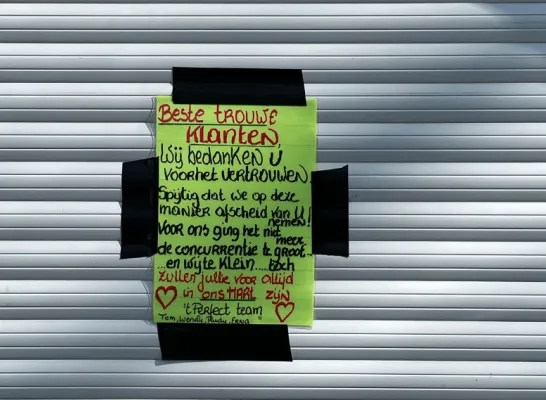 Beste trouwe
Klanten,
Wij bedanken U
voor het vertrouwen.
Spijtig dat we op deze
manier afscheid van U!
nemen!
Voor ons ging het niet
meer
de concurrentie te groot...
...en wij te Klein.... toch
zullen jullie voor altijd
in ons HART zijn
't Perfect team
Tom, Wendy,